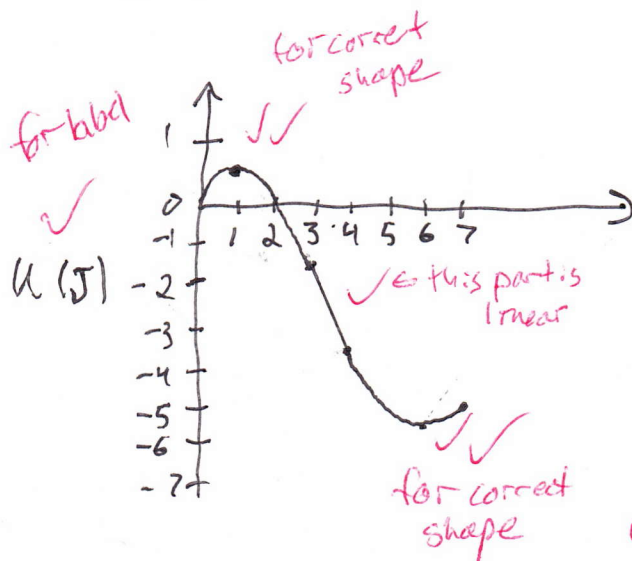 for correct
shape
for label
1
0
-1
-2
-3
-4
-5
-6
-7
1 2 3 4 5 6 7
U (J)
← this part is
linear
for correct
shape